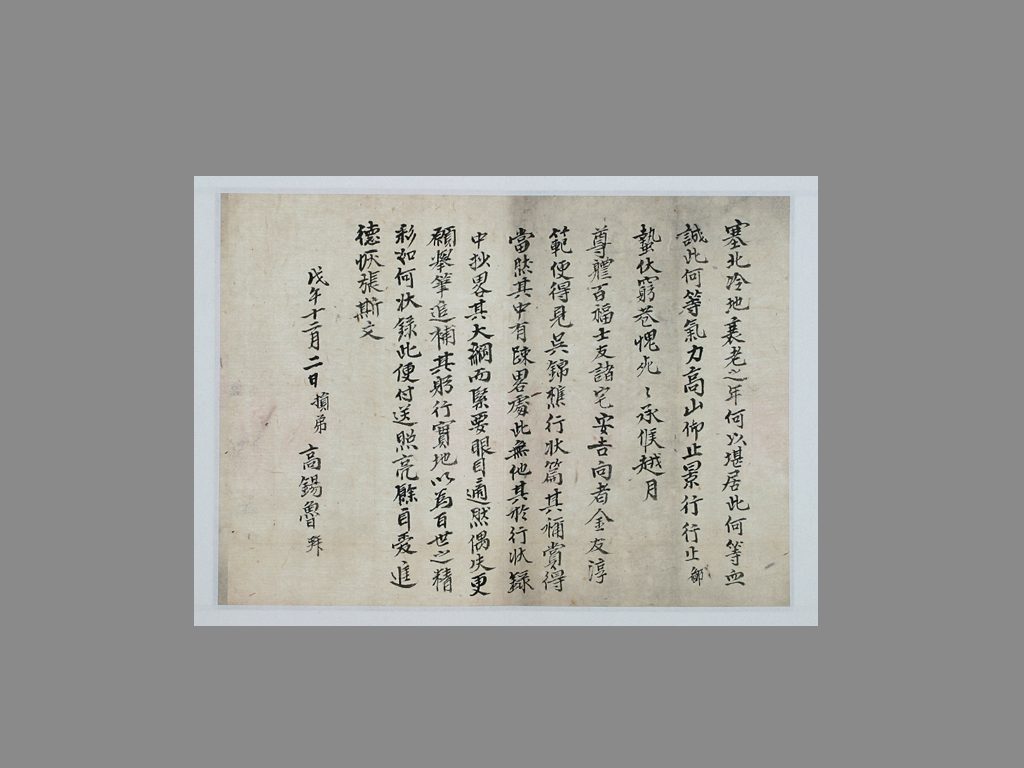 塞北冷地衰老之年何以堪居此何等血
誠此何等氣力高山仰止景行行止鄙
蟄伏窮巷愧死〻承候越月
尊軆百福士友諸宅安吉向者金友淳
範便得見吳錦樵行狀篇其補賞得
當然其中有踈畧處此無他其於行狀錄
中抄畧其大綱而緊要眼目適然偶失更
願擧筆追補其躬行實地以爲百世之精
彩如何狀錄此便付送照亮餘自愛進
德恢張斯文
戊午十二月二日損弟高錫魯拜